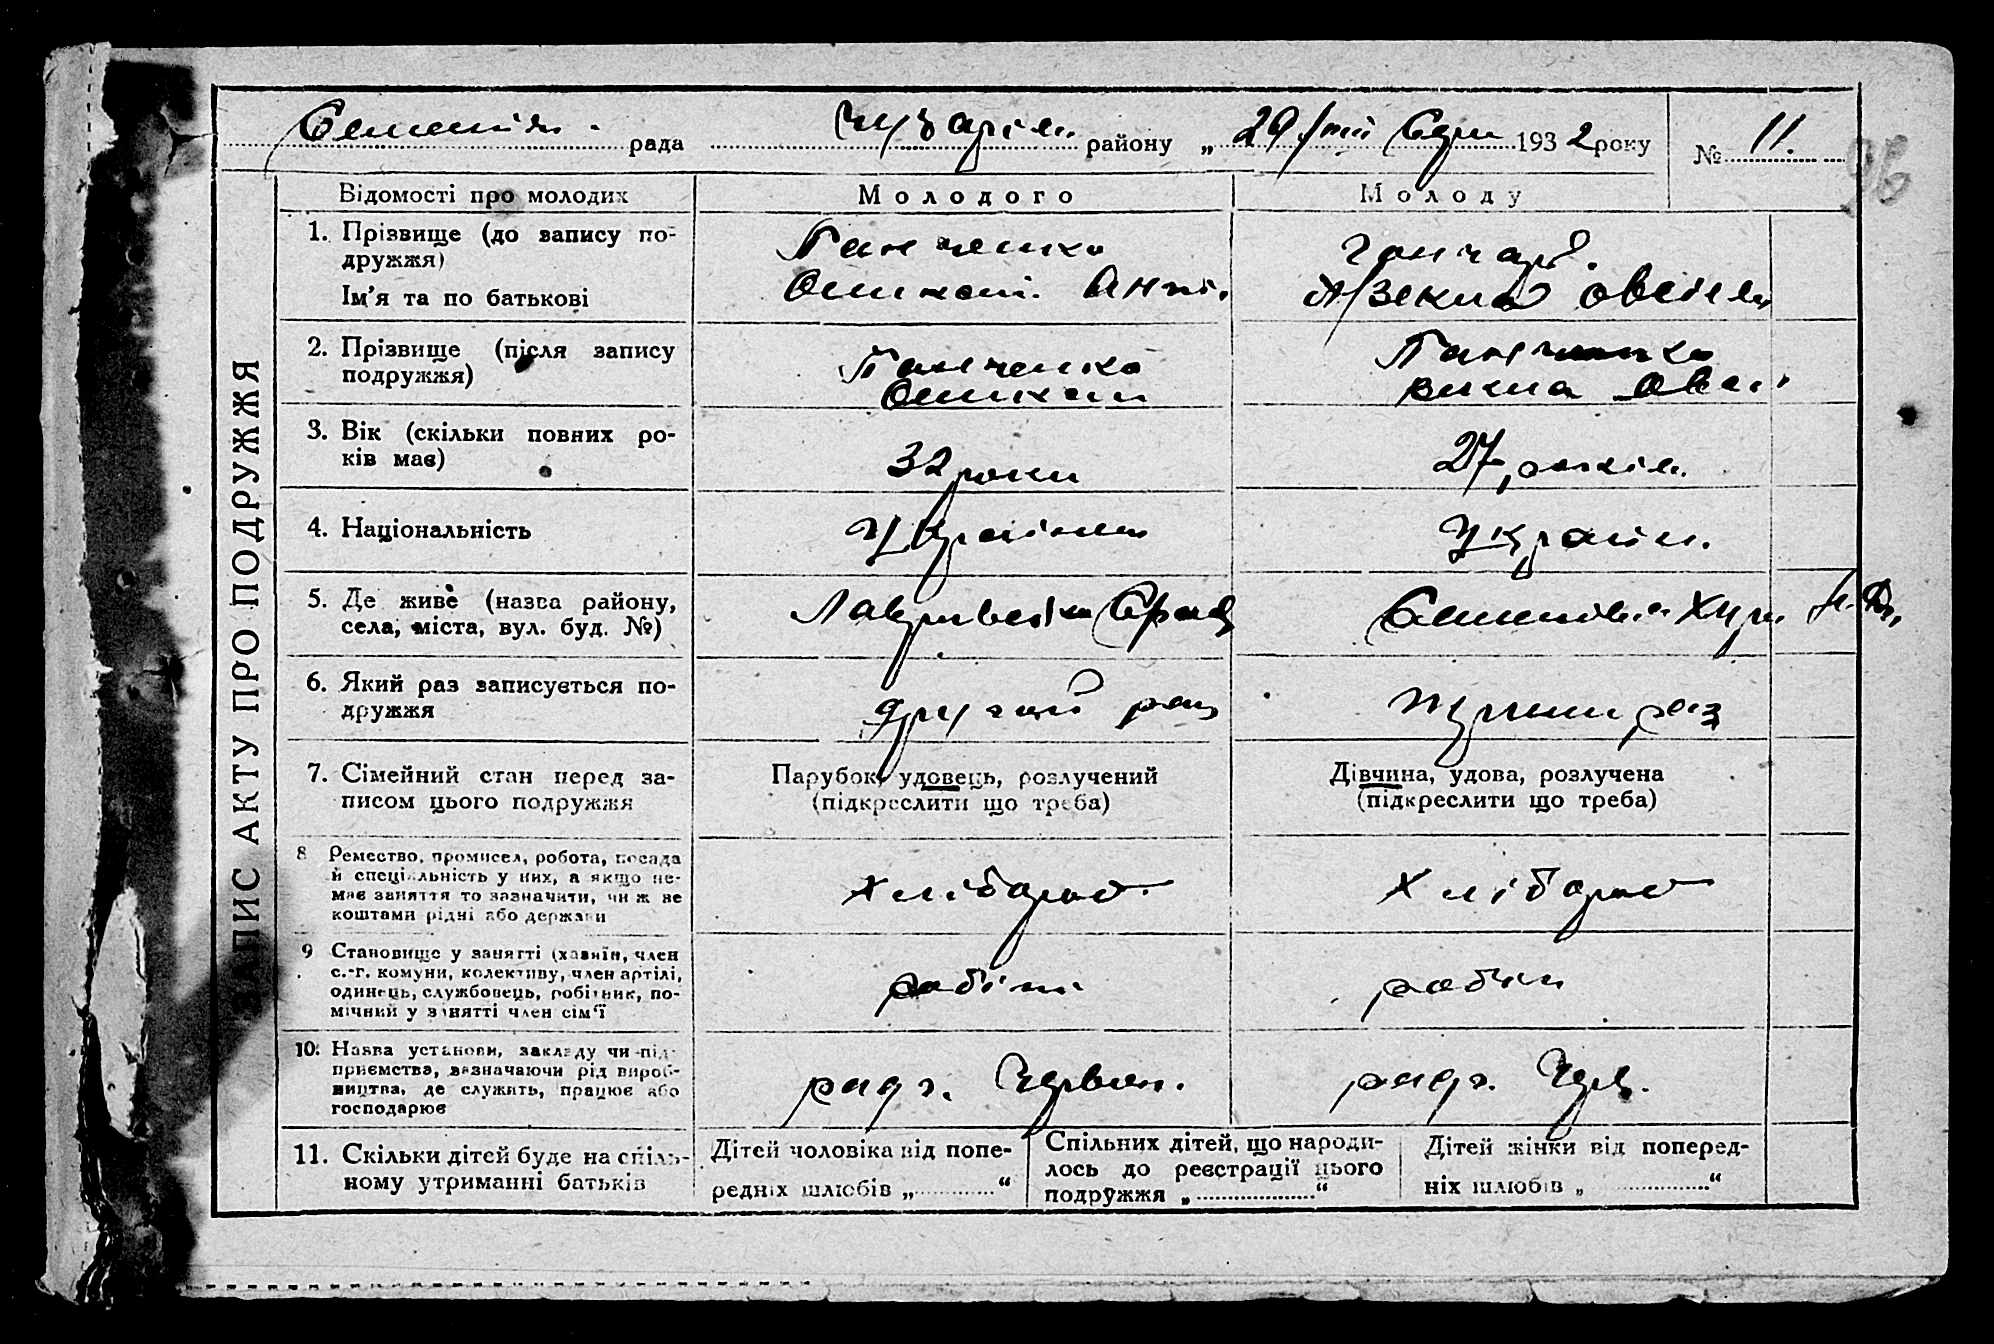 рада району „29 193 2 року № 11.
ЗАПИС АКТУ ПРО ПОДРУЖЖЯ
Відомості про молодих
Молодого
Молоду
1. Прізвище (до запису по-
дружжя)
Ім'я та по батькові
Панченко
Гончар.
2. Прізвище (після запису
подружжя)
Панченко
Панченко
3. Вік (скільки повних ро-
ків має)
32 роки
27 років.
4. Національність
Українець
Україн.
5. Де живе (назва району,
села, міста, вул. буд. №)
6. Який раз записується по-
дружжя
другий раз
перший раз
7. Сімейний стан перед за-
писом цього подружжя
Парубок, удовець, розлучений
(підкреслити що треба)
Дівчина, удова, розлучена
(підкреслити що треба)
8 Ремество, промисел, робота, посада
й спеціяльність у них, а якщо не-
має заняття то зазначити, чи ж не
коштами рідні або держави
Хлібороб
Хлібороб
9 Становище у занятті (хазяїн, член
с.-г. комуни, колективу, член артілі,
одинець, службовець, робітник, по-
мічний у занятті член сім'ї
робітн
робітн
10. Назва установи, закладу чи під-
приємства, зазначаючи рід вироб-
ництва, де служить, працює або
господарює
радг. Червон.
радг. Черв.
11. Скільки дітей буде на спіль-
ному утриманні батьків
Дітей чоловіка від попе-
редніх шлюбів „ “
Спільних дітей, що народи-
лось до реєстрації цього
подружжя „ “
Дітей жінки від поперед-
ніх шлюбів „ “